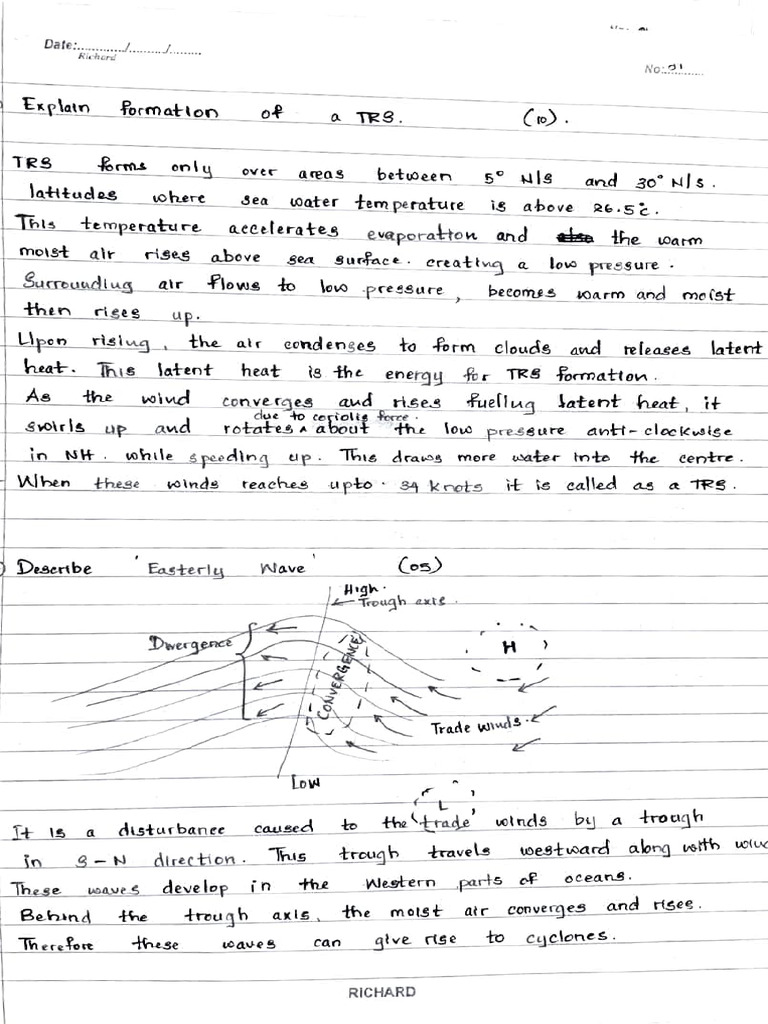 Date:.........../........./.........
Richard
No:01
Explain formation of a TRS. (10).
TRS forms only over areas between 5° N/S and 30° N/S.
latitudes where sea water temperature is above 26.5°c.
This temperature accelerates evaporation and the warm
moist air rises above sea surface. creating a low pressure.
Surrounding air flows to low pressure, becomes warm and moist
then rises up.
Upon rising, the air condenses to form clouds and releases latent
heat. This latent heat is the energy for TRS formation.
As the wind converges and rises fuelling latent heat, it
due to coriolis force.
swirls up and rotates ^ about the low pressure anti-clockwise
in NH. while speeding up. This draws more water into the centre.
When these winds reaches upto 34 knots it is called as a TRS.
Describe 'Easterly Wave' (05)
High.
Trough axis.
Divergence
CONVERGENCE
H
Trade winds.
Low
L
It is a disturbance caused to the 'trade' winds by a trough
in S-N direction. This trough travels westward along with wind
These waves develop in the Western parts of oceans.
Behind the trough axis, the moist air converges and rises.
Therefore these waves can give rise to cyclones.
RICHARD